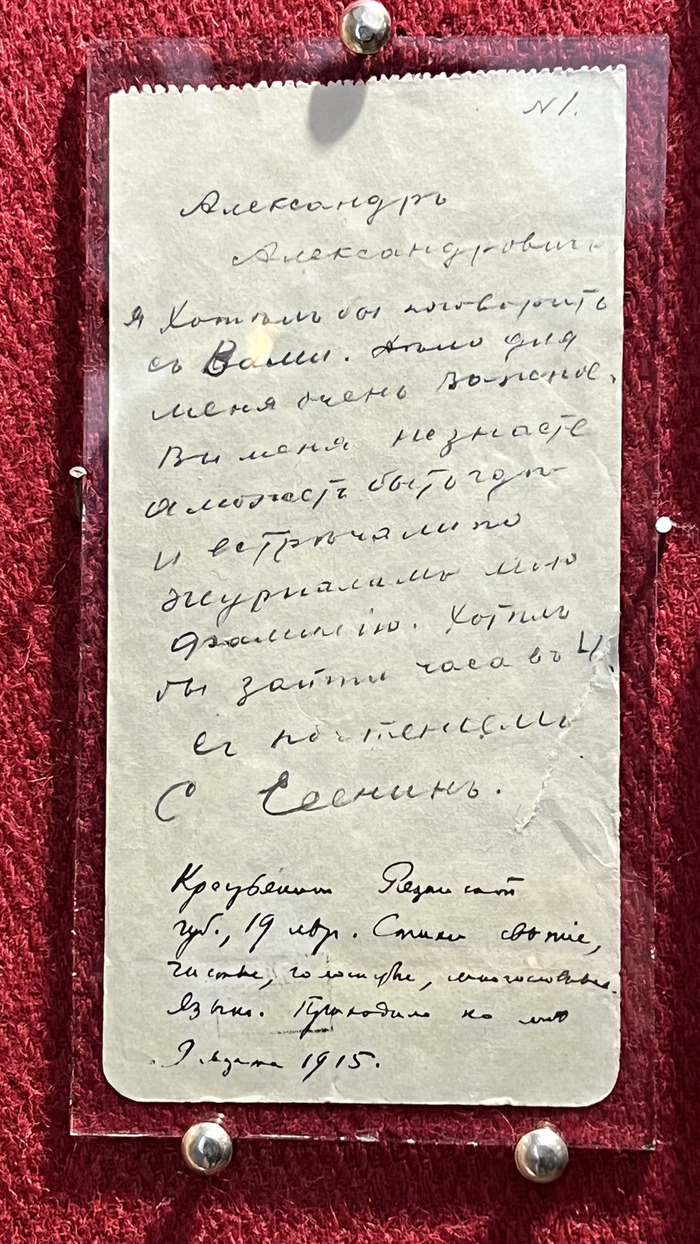 N 1.
Александръ
Александровичъ
я Хотѣлъ бы поговорить
съ Вами. Дѣло для
меня очень важное.
Вы меня не знаете
а можетъ быть гдѣ
и встрѣчали по
журналамъ мою
фамилію. Хотѣлъ
бы зайти часа въ 4.
Съ почтеніемъ
С Есенинъ.
Крестьянин Рязанской
губ., 19 лет. Стихи свежие,
чистые, голосистые, многословные
Язык. Приходил ко мне
9 марта 1915.